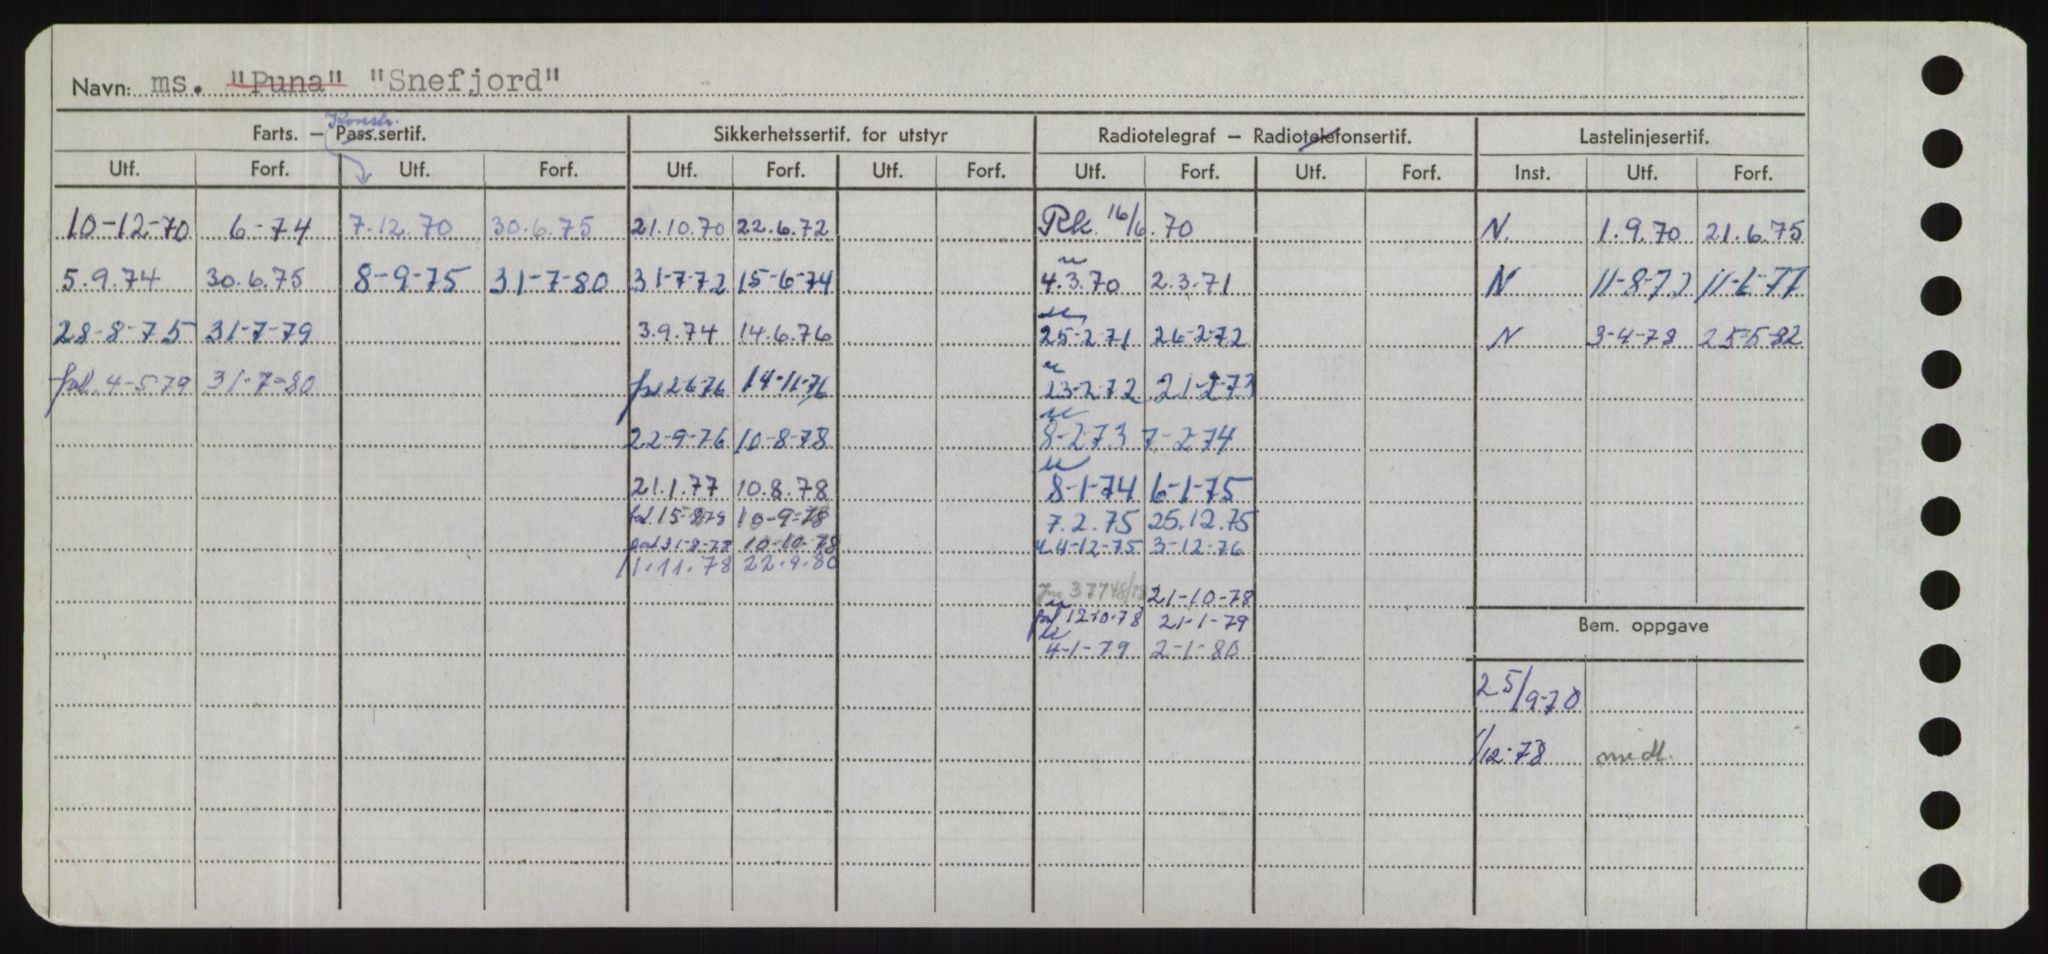 Navn: ms. "Puna" "Snefjord"
Konstr.
Farts. — Pass.sertif. Sikkerhetssertif. for utstyr Radiotelegraf — Radiotelefonsertif. Lastelinjesertif.
Utf. Forf. Utf. Forf. Utf. Forf. Utf. Forf. Utf. Forf. Utf. Forf. Inst. Utf. Forf.
10-12-70 6-74 7.12.70 30.6.75 21.10.70 22.6.72 Rk. 16/6.70 N. 1.9.70 21.6.75
5.9.74 30.6.75 8-9-75 31-7-80 31-7-72 15-6-74 4.3.70 2.3.71 N 11-8-72 11-6-77
28-8-75 31-7-79 3.9.74 14.6.76 25-2-71 26-2-72 N 3-4-78 25-5-82
4-5-79 31-7-80 2-6-76 14-11-76 23-2-72 21-2-73
22-9-76 10-8-78 8-2-73 7-2-74
21.1.77 10.8.78 8-1-74 6-1-75
15-8-78 10-9-78 7.2.75 25.12.75
31-8-78 10-10-78 4-12-75 3-12-76
1.11.78 22.9.80
37748/78 21-10-78
12-10-78 21-1-79
Bem. oppgave
4-1-79 2-1-80
25/9-70
1/12-78 midl.